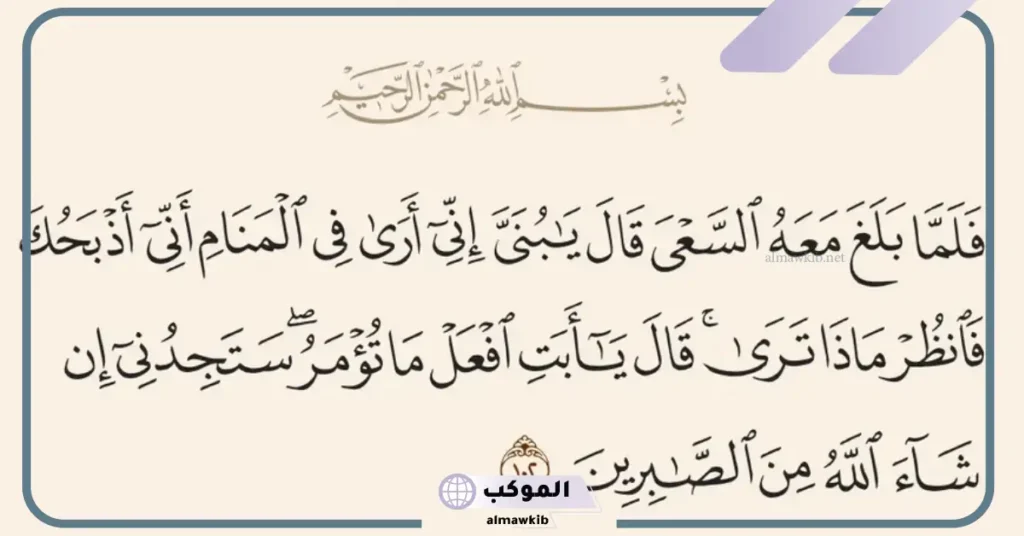 بِسْمِ ٱللَّهِ ٱلرَّحْمَٰنِ ٱلرَّحِيمِ
فَلَمَّا بَلَغَ مَعَهُ ٱلسَّعْىَ قَالَ يَـٰبُنَىَّ إِنِّىٓ أَرَىٰ فِى ٱلْمَنَامِ أَنِّىٓ أَذْبَحُكَ
almawkib.net
فَٱنظُرْ مَاذَا تَرَىٰ ۚ قَالَ يَـٰٓأَبَتِ ٱفْعَلْ مَا تُؤْمَرُ ۖ سَتَجِدُنِىٓ إِن
شَآءَ ٱللَّهُ مِنَ ٱلصَّـٰبِرِينَ ١٠٢
الموكب
almawkib